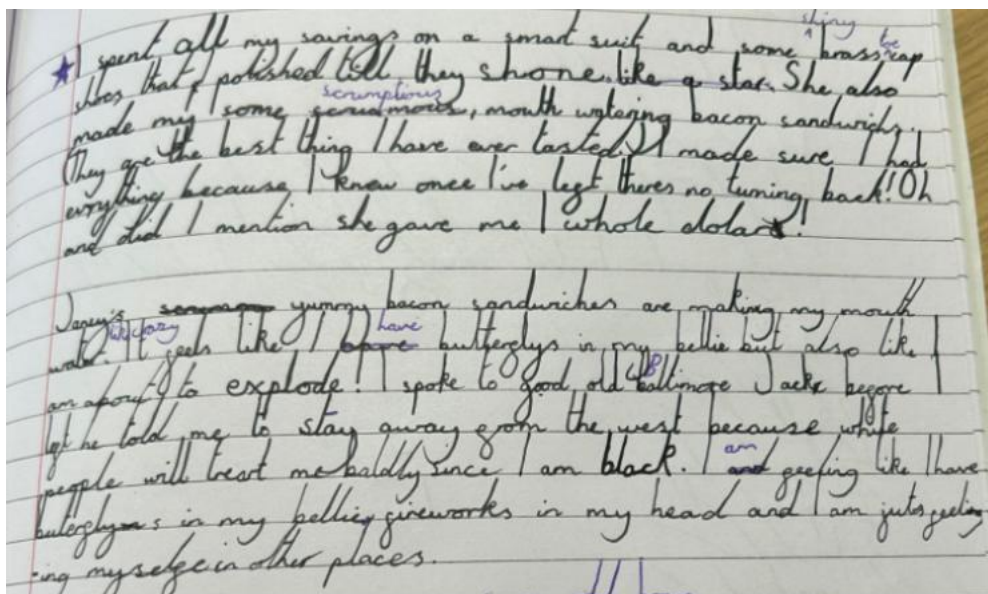 shiny
I spent all my savings on a smart suit and some brass cap
shoes that I polished till they shone like a star. She also
scrumptious
made my some scrumous, mouth watering bacon sandwichs.
(They are the best thing I have ever tasted!) I made sure I had
evrything because I knew once I've left theres no turning back! Oh
and did I mention she gave me 1 whole dolar!
Janey's yummy bacon sandwiches are making my mouth
have
water. It feels like I butterflys in my bellie but also like I
B
am apourt to explode! I spoke to good old Balltimore Jacke before I
left he told me to stay away from the west because white
people will treart me baldly since I am black. I am feefing like I have
buterflys in my bellie, fireworks in my head and I am juts feeling
-ing myselfe in other places.